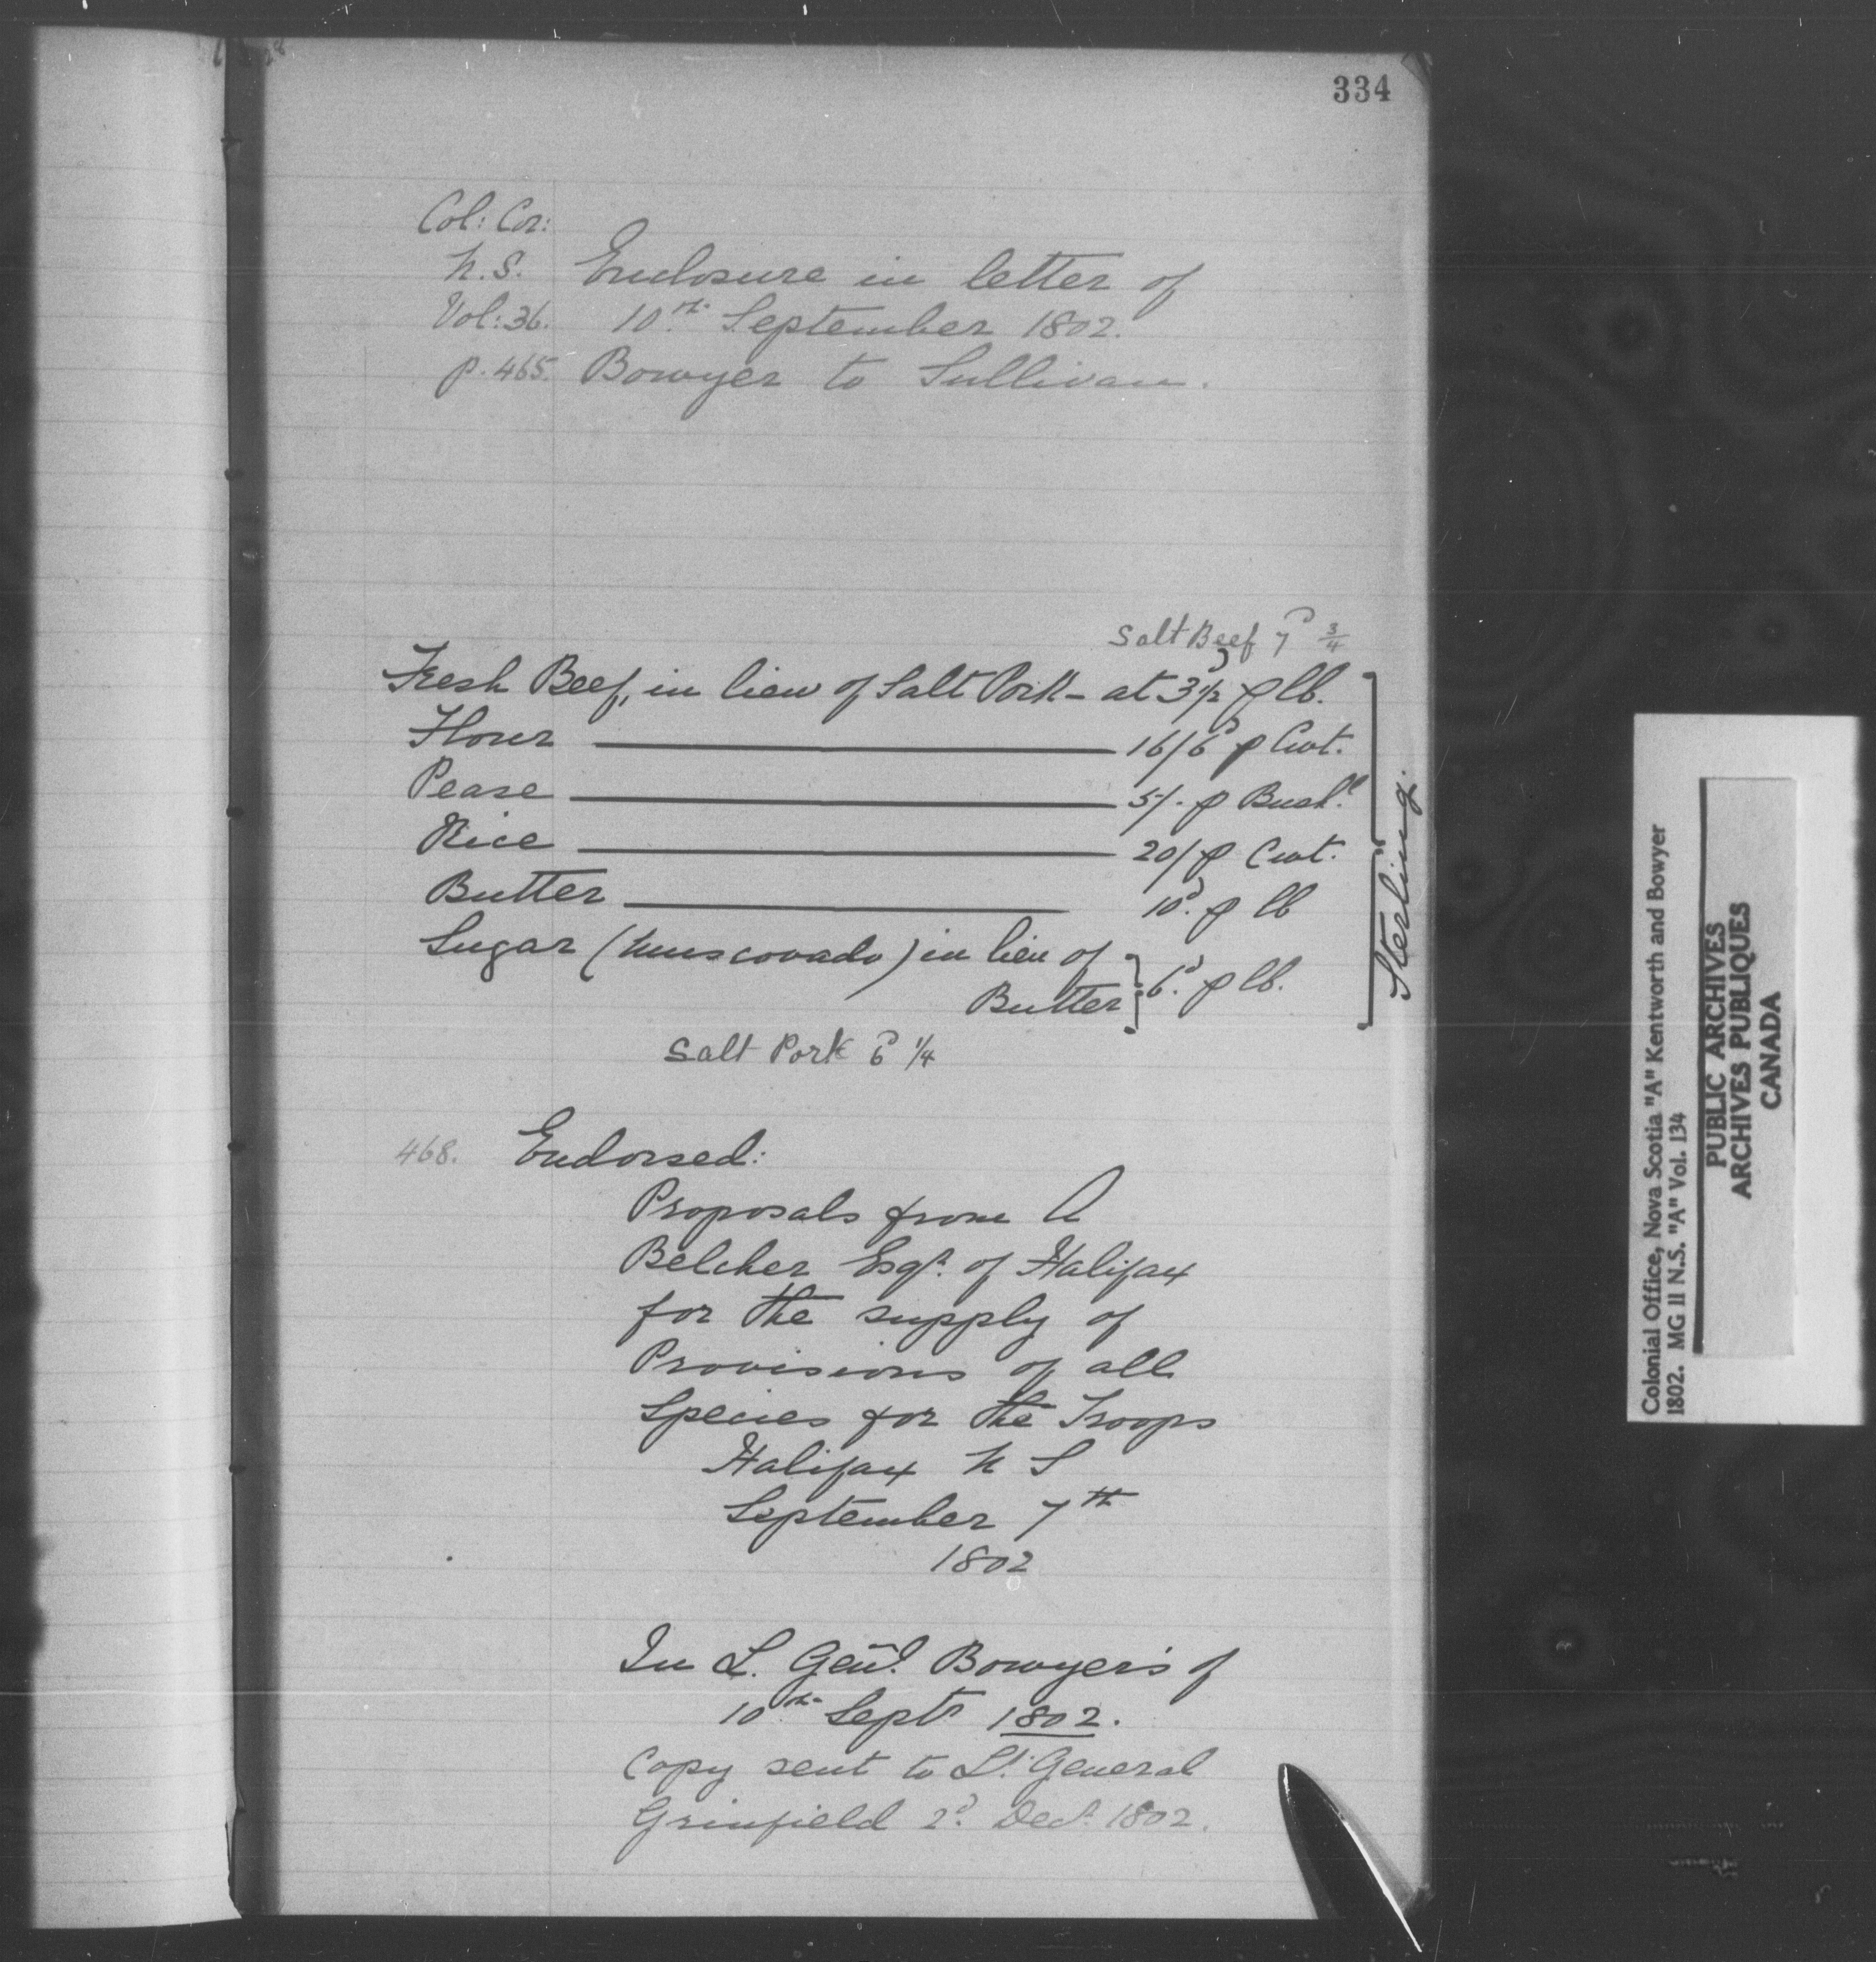 334
Col: Cor:
N.S. Enclosure in letter of
Vol: 36. 10th September 1802.
p. 465. Bowyer to Sullivan.
Salt Beef 7d 3/4
Fresh Beef, in lieu of Salt Pork - at 3d 1/2 p lb.
Flour 16/6d p Cwt.
Pease 5/- p Bushl
Rice 20/ p Cwt.
Butter 10d. p lb
Sugar (Muscovado) in lieu of
Butter } 6d. p lb.
Sterling.
Salt Pork 6d 1/4
468. Endorsed:
Proposals from A
Belcher Esqr. of Halifax
for the supply of
Provisions of all
Species for the Troops
Halifax N S
September 7th
1802
In L. Genl. Bowyer's of
10th Septr 1802.
Copy sent to Lt. General
Grinfield 2d. Decr. 1802.
Colonial Office, Nova Scotia "A" Kentworth and Bowyer
1802. MG 11 N.S. "A" Vol. 134
PUBLIC ARCHIVES
ARCHIVES PUBLIQUES
CANADA